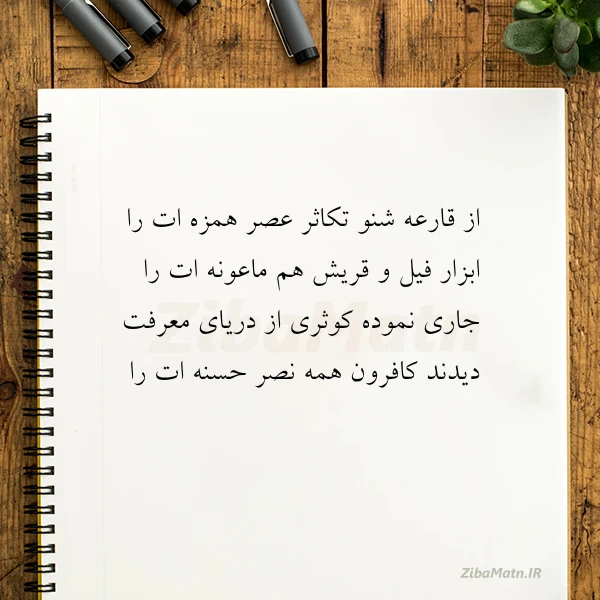 از قارعه شنو تکاثر عصر همزه ات را
ابزار فیل و قریش هم ماعونه ات را
جاری نموده کوثری از دریای معرفت
دیدند کافرون همه نصر حسنه ات را
ZibaMatn
ZibaMatn.IR